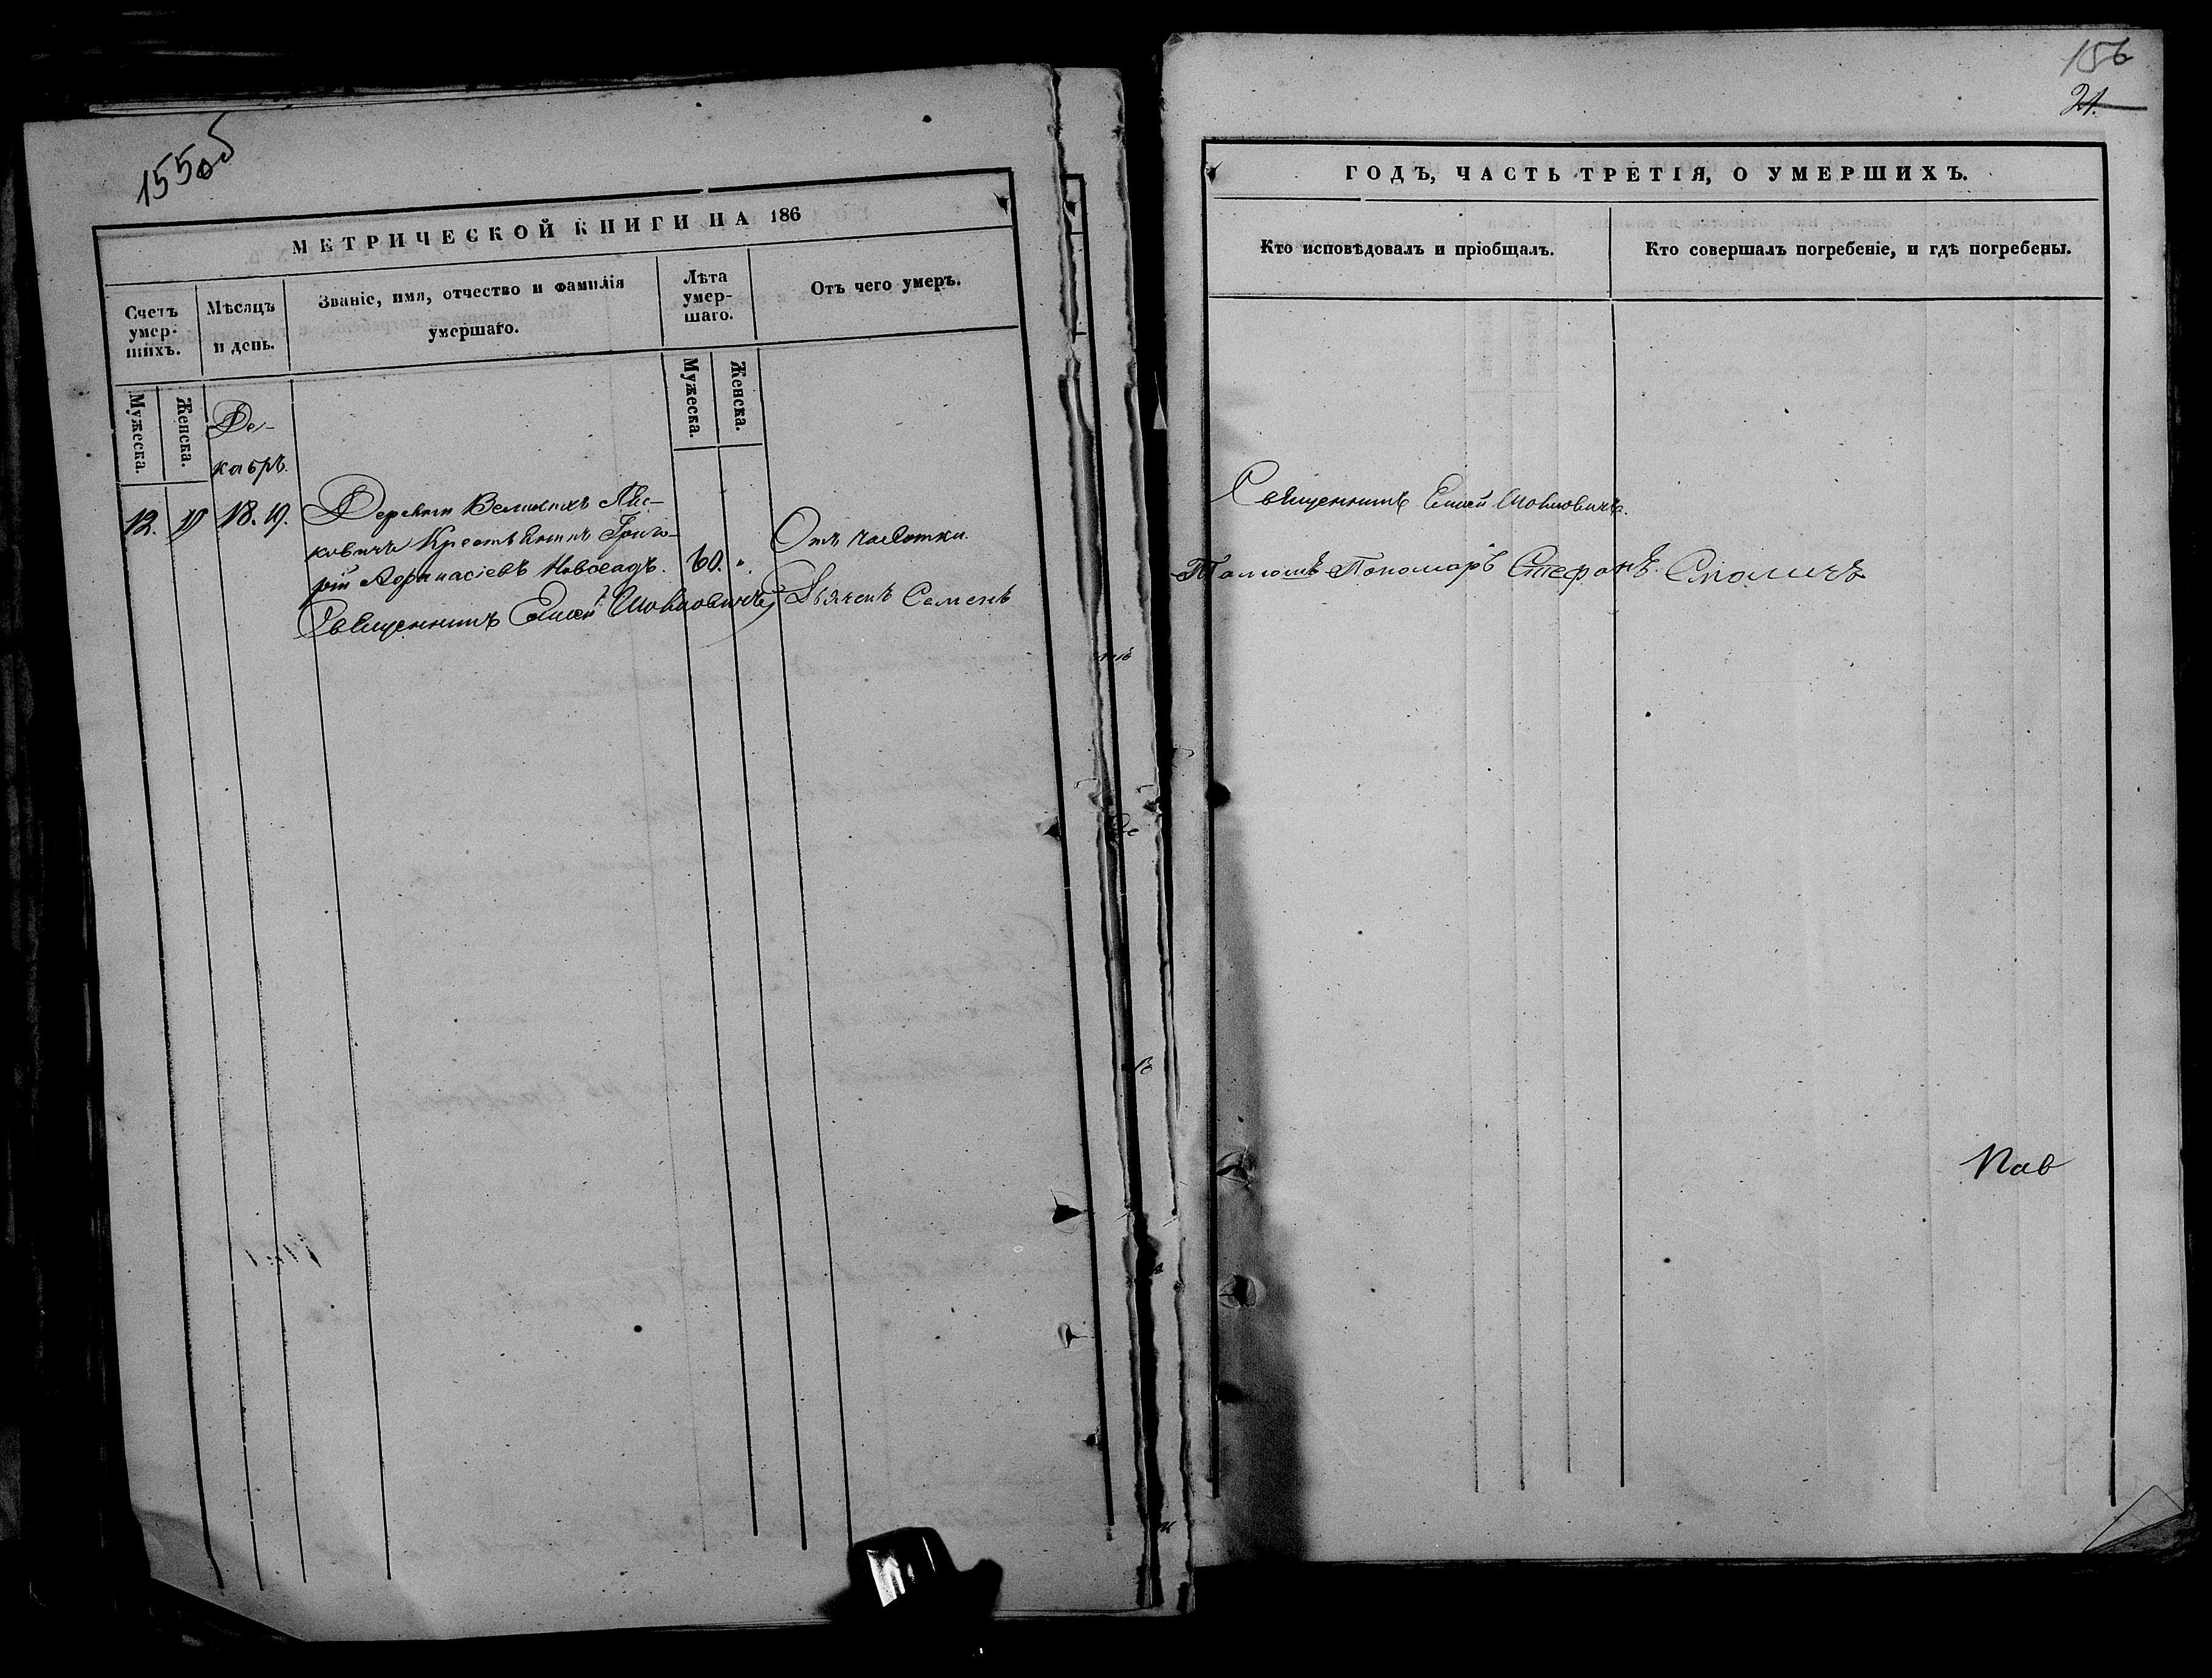 155об
МЕТРИЧЕСКОЙ КНИГИ НА 186
Счетъ умер- шихъ.
Мѣсяцъ и день.
Званіе, имя, отчество и фамилія умершаго.
Лѣта умер- шаго.
Отъ чего умеръ.
Мужеска.
Женска.
Мужеска.
Женска.
Де-
кабрь.
12. 18. 19. Деревни Великихъ Лис-
ковичъ Крестьянинъ Григо-
рій Афанасіевъ Новосадъ. 60. „ Отъ чахотки.
Священникъ Дьячекъ Семенъ
156
21.
ГОДЪ, ЧАСТЬ ТРЕТІЯ, О УМЕРШИХЪ.
Кто исповѣдовалъ и пріобщалъ.
Кто совершалъ погребеніе, и гдѣ погребены.
Священникъ
Пономарь Стефанъ